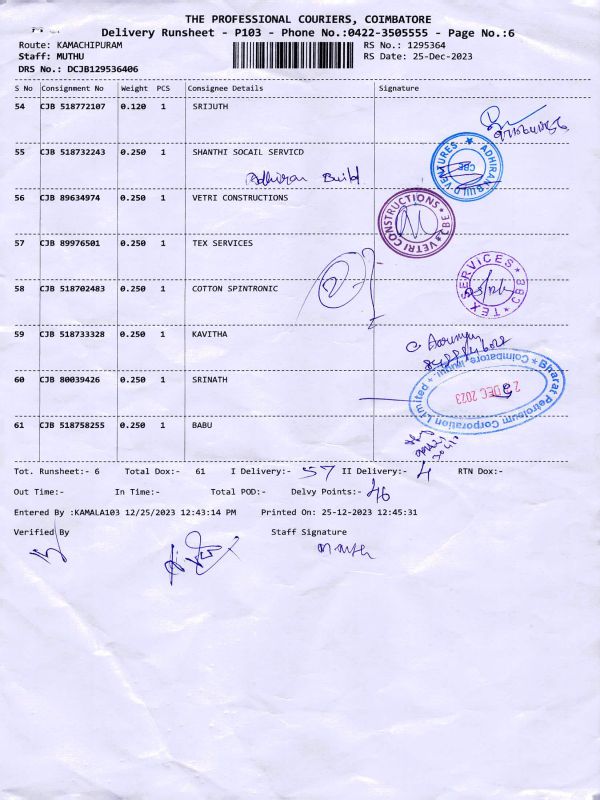 THE PROFESSIONAL COURIERS, COIMBATORE
Delivery Runsheet - P103 - Phone No.:0422-3505555 - Page No.:6
Route: KAMACHIPURAM RS No.: 1295364
Staff: MUTHU RS Date: 25-Dec-2023
DRS No.: DCJB129536406
S No Consignment No Weight PCS Consignee Details Signature
54 CJB 518772107 0.120 1 SRIJUTH
55 CJB 518732243 0.250 1 SHANTHI SOCAIL SERVICD
Adhiran Build
ADHIRAN BUILD VENTURES CBE
56 CJB 89634974 0.250 1 VETRI CONSTRUCTIONS
VETRI CONSTRUCTIONS CBE
57 CJB 89976501 0.250 1 TEX SERVICES
TEX SERVICES CBE
58 CJB 518702483 0.250 1 COTTON SPINTRONIC
59 CJB 518733328 0.250 1 KAVITHA
60 CJB 80039426 0.250 1 SRINATH
Bharat Petroleum Corporation Limited Coimbatore
DEC 2023
61 CJB 518758255 0.250 1 BABU
Tot. Runsheet:- 6 Total Dox:- 61 I Delivery:- 57 II Delivery:- 4 RTN Dox:-
Out Time:- In Time:- Total POD:- Delvy Points:- 46
Entered By :KAMALA103 12/25/2023 12:43:14 PM Printed On: 25-12-2023 12:45:31
Verified By Staff Signature